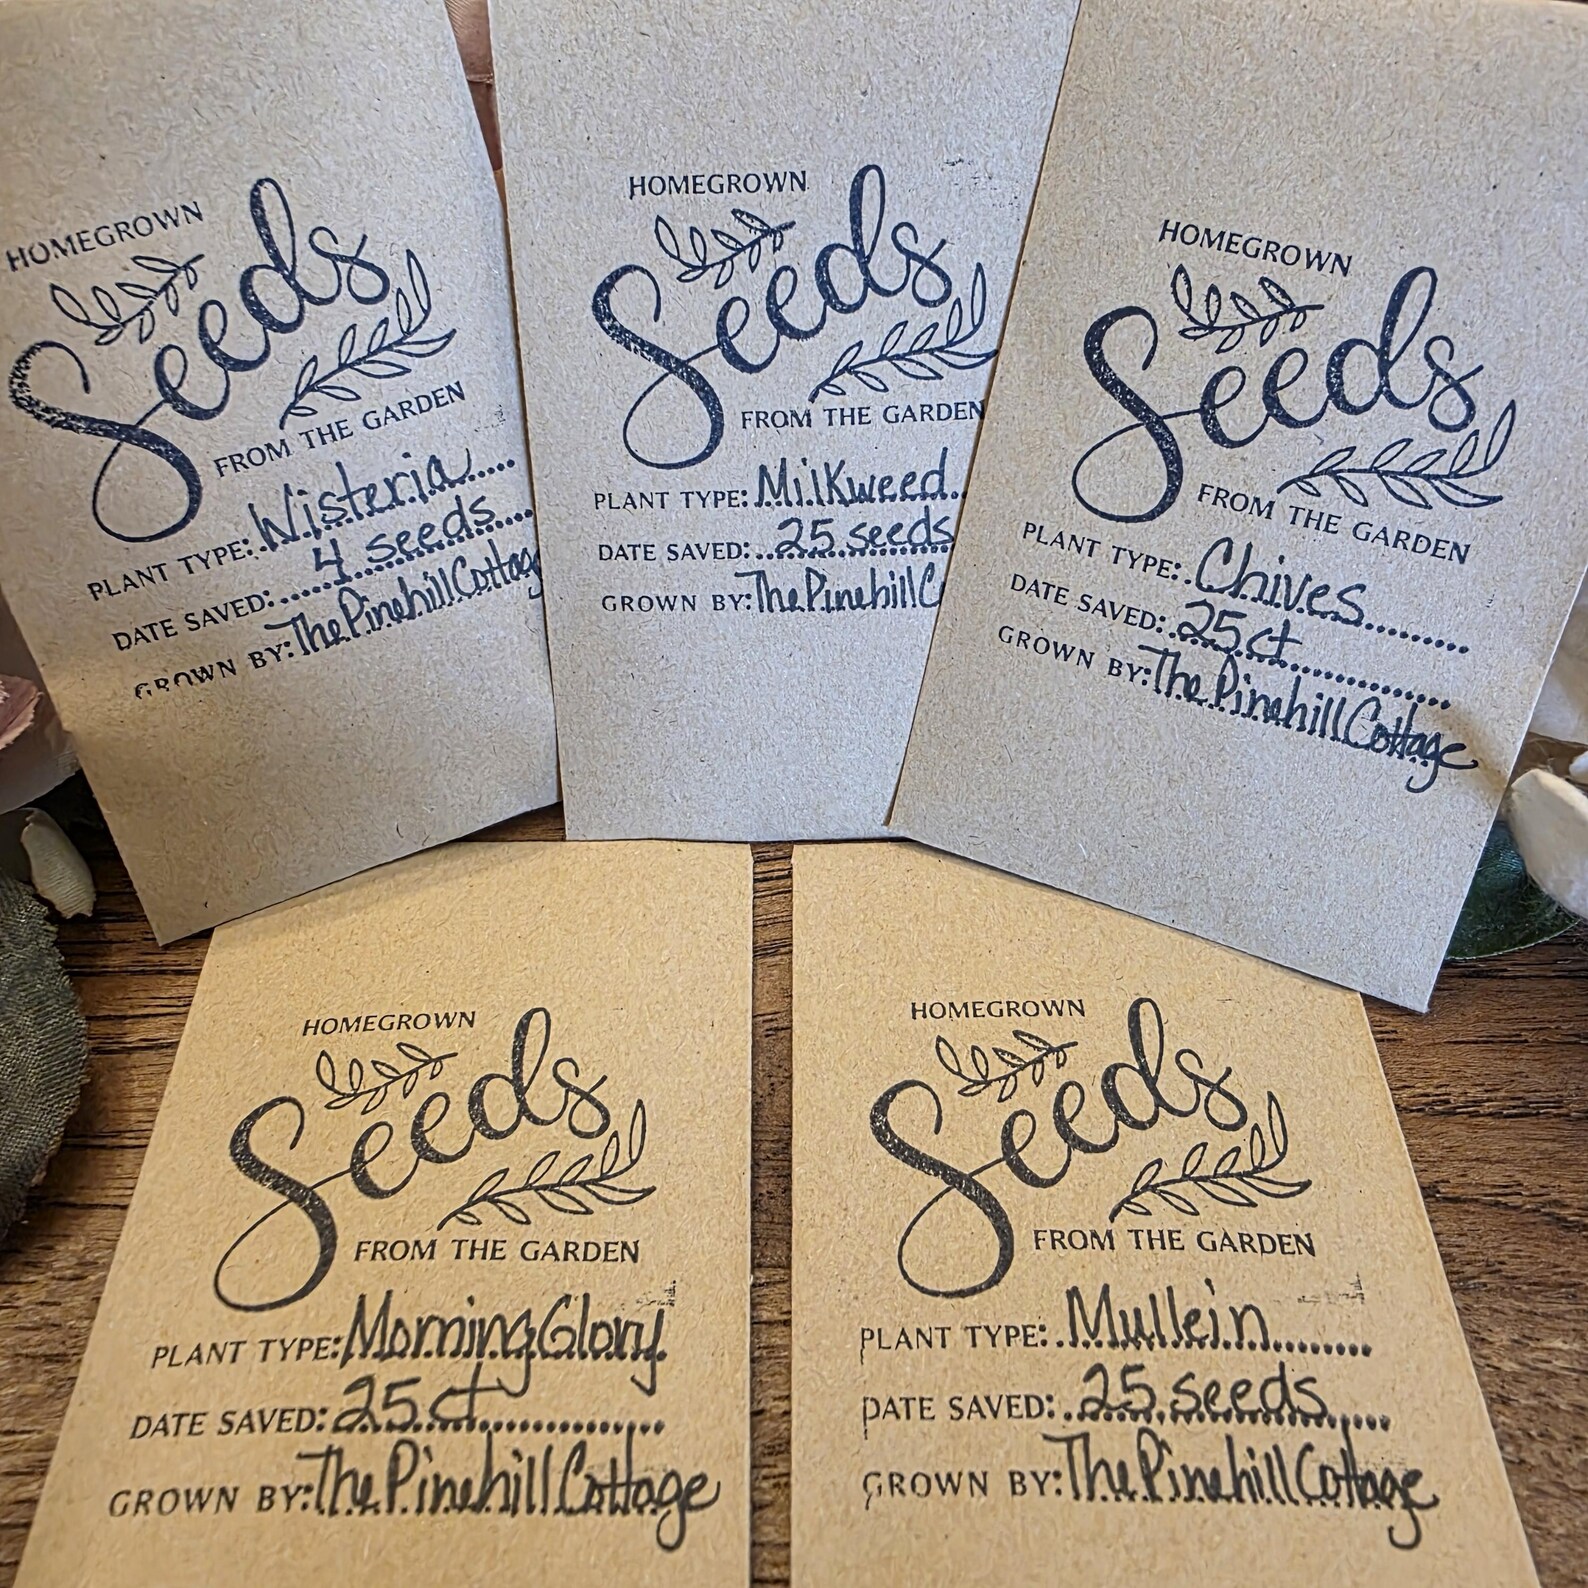 HOMEGROWN
Seeds
FROM THE GARDEN
PLANT TYPE: Wisteria
DATE SAVED: 4 seeds
GROWN BY: The Pinehill Cottage
HOMEGROWN
Seeds
FROM THE GARDEN
PLANT TYPE: Milkweed
DATE SAVED: 25 seeds
GROWN BY: The Pinehill Co
HOMEGROWN
Seeds
FROM THE GARDEN
PLANT TYPE: Chives
DATE SAVED: 25 ct
GROWN BY: The Pinehill Cottage
HOMEGROWN
Seeds
FROM THE GARDEN
PLANT TYPE: Morning Glory
DATE SAVED: 25 ct
GROWN BY: The Pinehill Cottage
HOMEGROWN
Seeds
FROM THE GARDEN
PLANT TYPE: Mullein
DATE SAVED: 25 seeds
GROWN BY: The Pinehill Cottage